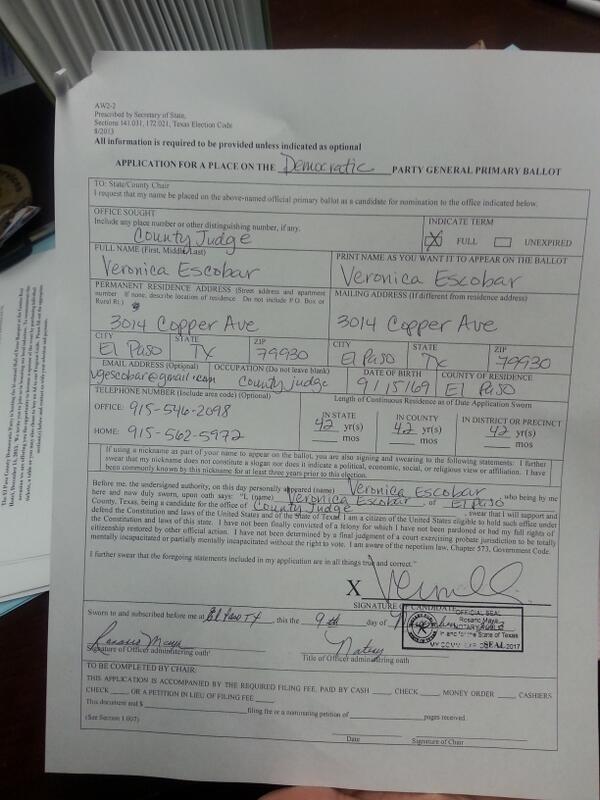 AW2-2
Prescribed by Secretary of State,
Sections 141.031, 172.021, Texas Election Code
8/2013
All information is required to be provided unless indicated as optional
APPLICATION FOR A PLACE ON THE Democratic PARTY GENERAL PRIMARY BALLOT
TO: State/County Chair
I request that my name be placed on the above-named official primary ballot as a candidate for nomination to the office indicated below.
OFFICE SOUGHT
Include any place number or other distinguishing number, if any.
County Judge
INDICATE TERM
X FULL UNEXPIRED
FULL NAME (First, Middle, Last)
Veronica Escobar
PRINT NAME AS YOU WANT IT TO APPEAR ON THE BALLOT
Veronica Escobar
PERMANENT RESIDENCE ADDRESS (Street address and apartment
number. If none, describe location of residence. Do not include P.O. Box or
Rural Rt.)
3014 Copper Ave
MAILING ADDRESS (If different from residence address)
3014 Copper Ave
CITY STATE ZIP
El Paso TX 79930
CITY STATE ZIP
El Paso Tx 79930
EMAIL ADDRESS (Optional)
vgescobar@gmail.com
OCCUPATION (Do not leave blank)
County judge
DATE OF BIRTH
9/15/69
COUNTY OF RESIDENCE
El Paso
TELEPHONE NUMBER (Include area code) (Optional)
OFFICE: 915-546-2098
HOME: 915-562-5972
Length of Continuous Residence as of Date Application Sworn
IN STATE IN COUNTY IN DISTRICT OR PRECINCT
42 yr(s) 42 yr(s) 42 yr(s)
mos mos mos
If using a nickname as part of your name to appear on the ballot, you are also signing and swearing to the following statements: I further
swear that my nickname does not constitute a slogan nor does it indicate a political, economic, social, or religious view or affiliation. I have
been commonly known by this nickname for at least three years prior to this election.
Before me, the undersigned authority, on this day personally appeared (name) Veronica Escobar who being by me
here and now duly sworn, upon oath says: "I, (name) Veronica Escobar, of El Paso
County, Texas, being a candidate for the office of County Judge, swear that I will support and
defend the Constitution and laws of the United States and of the State of Texas. I am a citizen of the United States eligible to hold such office under
the Constitution and laws of this state. I have not been finally convicted of a felony for which I have not been pardoned or had my full rights of
citizenship restored by other official action. I have not been determined by a final judgment of a court exercising probate jurisdiction to be totally
mentally incapacitated or partially mentally incapacitated without the right to vote. I am aware of the nepotism law, Chapter 573, Government Code.
I further swear that the foregoing statements included in my application are in all things true and correct."
X
SIGNATURE OF CANDIDATE
Sworn to and subscribed before me at El Paso TX, this the 9th day of
OFFICIAL SEAL
Rosario Maya
NOTARY PUBLIC
In and for the State of Texas
2017
SEAL
Rosario Maya
Signature of Officer administering oath
Notary
Title of Officer administering oath
TO BE COMPLETED BY CHAIR:
THIS APPLICATION IS ACCOMPANIED BY THE REQUIRED FILING FEE, PAID BY CASH CHECK MONEY ORDER CASHIERS
CHECK OR A PETITION IN LIEU OF FILING FEE
This document and $ filing fee or a nominating petition of pages received.
(See Section 1.007)
Date Signature of Chair